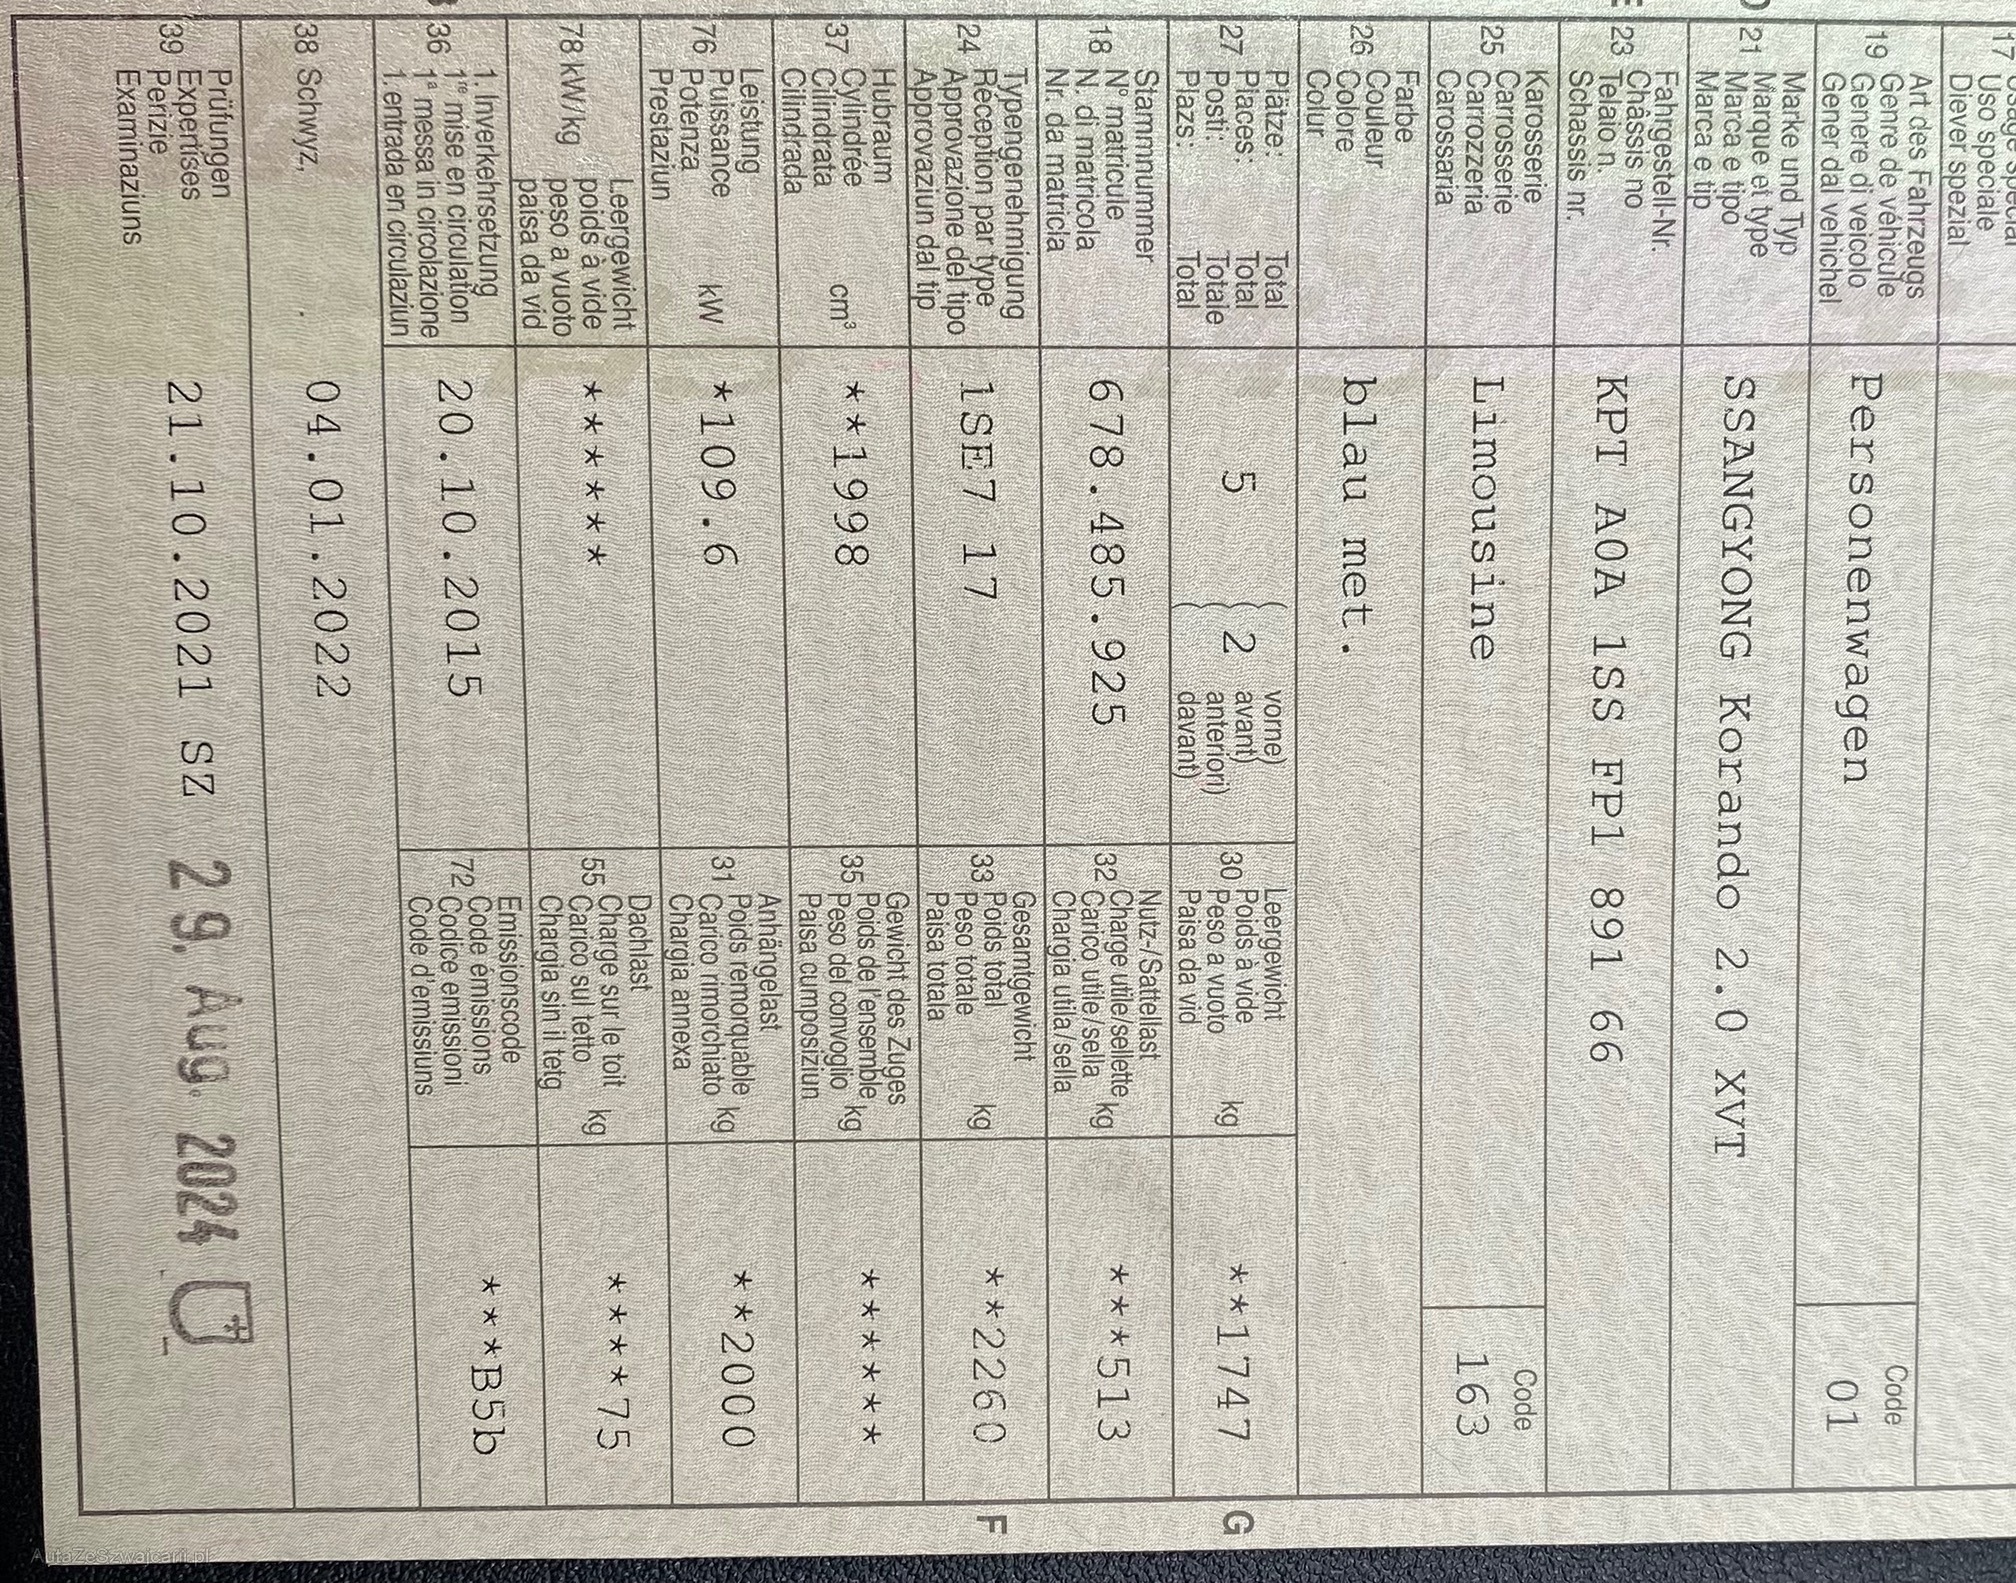 17 Uso speciale
Diever spezial
Art des Fahrzeugs
19 Genre de véhicule
Genere di veicolo
Gener dal vehichel
Personenwagen
Code
01
Marke und Typ
21 Marque et type
Marca e tipo
Marca e tip
SSANGYONG Korando 2.0 XVT
Fahrgestell-Nr.
23 Châssis no
Telaio n.
Schassis nr.
KPT A0A 1SS FP1 891 66
Karosserie
25 Carrosserie
Carrozzeria
Carossaria
Limousine
Code
163
Farbe
26 Couleur
Colore
Colur
blau met.
Plätze: Total
27 Places: Total
Posti: Totale
Plazs: Total
5
2
vorne)
avant)
anteriori)
davant)
Leergewicht
30 Poids à vide
Peso a vuoto kg
Paisa da vid
**1747
G
Stammnummer
18 N° matricule
N. di matricola
Nr. da matricla
678.485.925
Nutz-/Sattellast
32 Charge utile/sellette
Carico utile/sella kg
Chargia utila/sella
***513
Typengenehmigung
24 Réception par type
Approvazione del tipo
Approvaziun dal tip
1SE7 17
Gesamtgewicht
33 Poids total
Peso totale kg
Paisa totala
**2260
F
Hubraum
37 Cylindrée
Cilindrata cm³
Cilindrada
**1998
Gewicht des Zuges
35 Poids de l'ensemble
Peso del convoglio kg
Paisa cumposiziun
******
Leistung
76 Puissance
Potenza kW
Prestaziun
*109.6
Anhängelast
31 Poids remorquable
Carico rimorchiato kg
Chargia annexa
**2000
78 kW/kg
Leergewicht
poids à vide
peso a vuoto
paisa da vid
******
Dachlast
55 Charge sur le toit
Carico sul tetto kg
Chargia sin il tetg
****75
1. Inverkehrsetzung
36 1re mise en circulation
1a messa in circolazione
1. entrada en circulaziun
20.10.2015
Emissionscode
72 Code émissions
Codice emissioni
Code d'emissiuns
***B5b
38 Schwyz,
04.01.2022
Prüfungen
39 Expertises
Perizie
Examinaziuns
21.10.2021 SZ
29. Aug. 2024
AutaZeSzwajcarii.pl